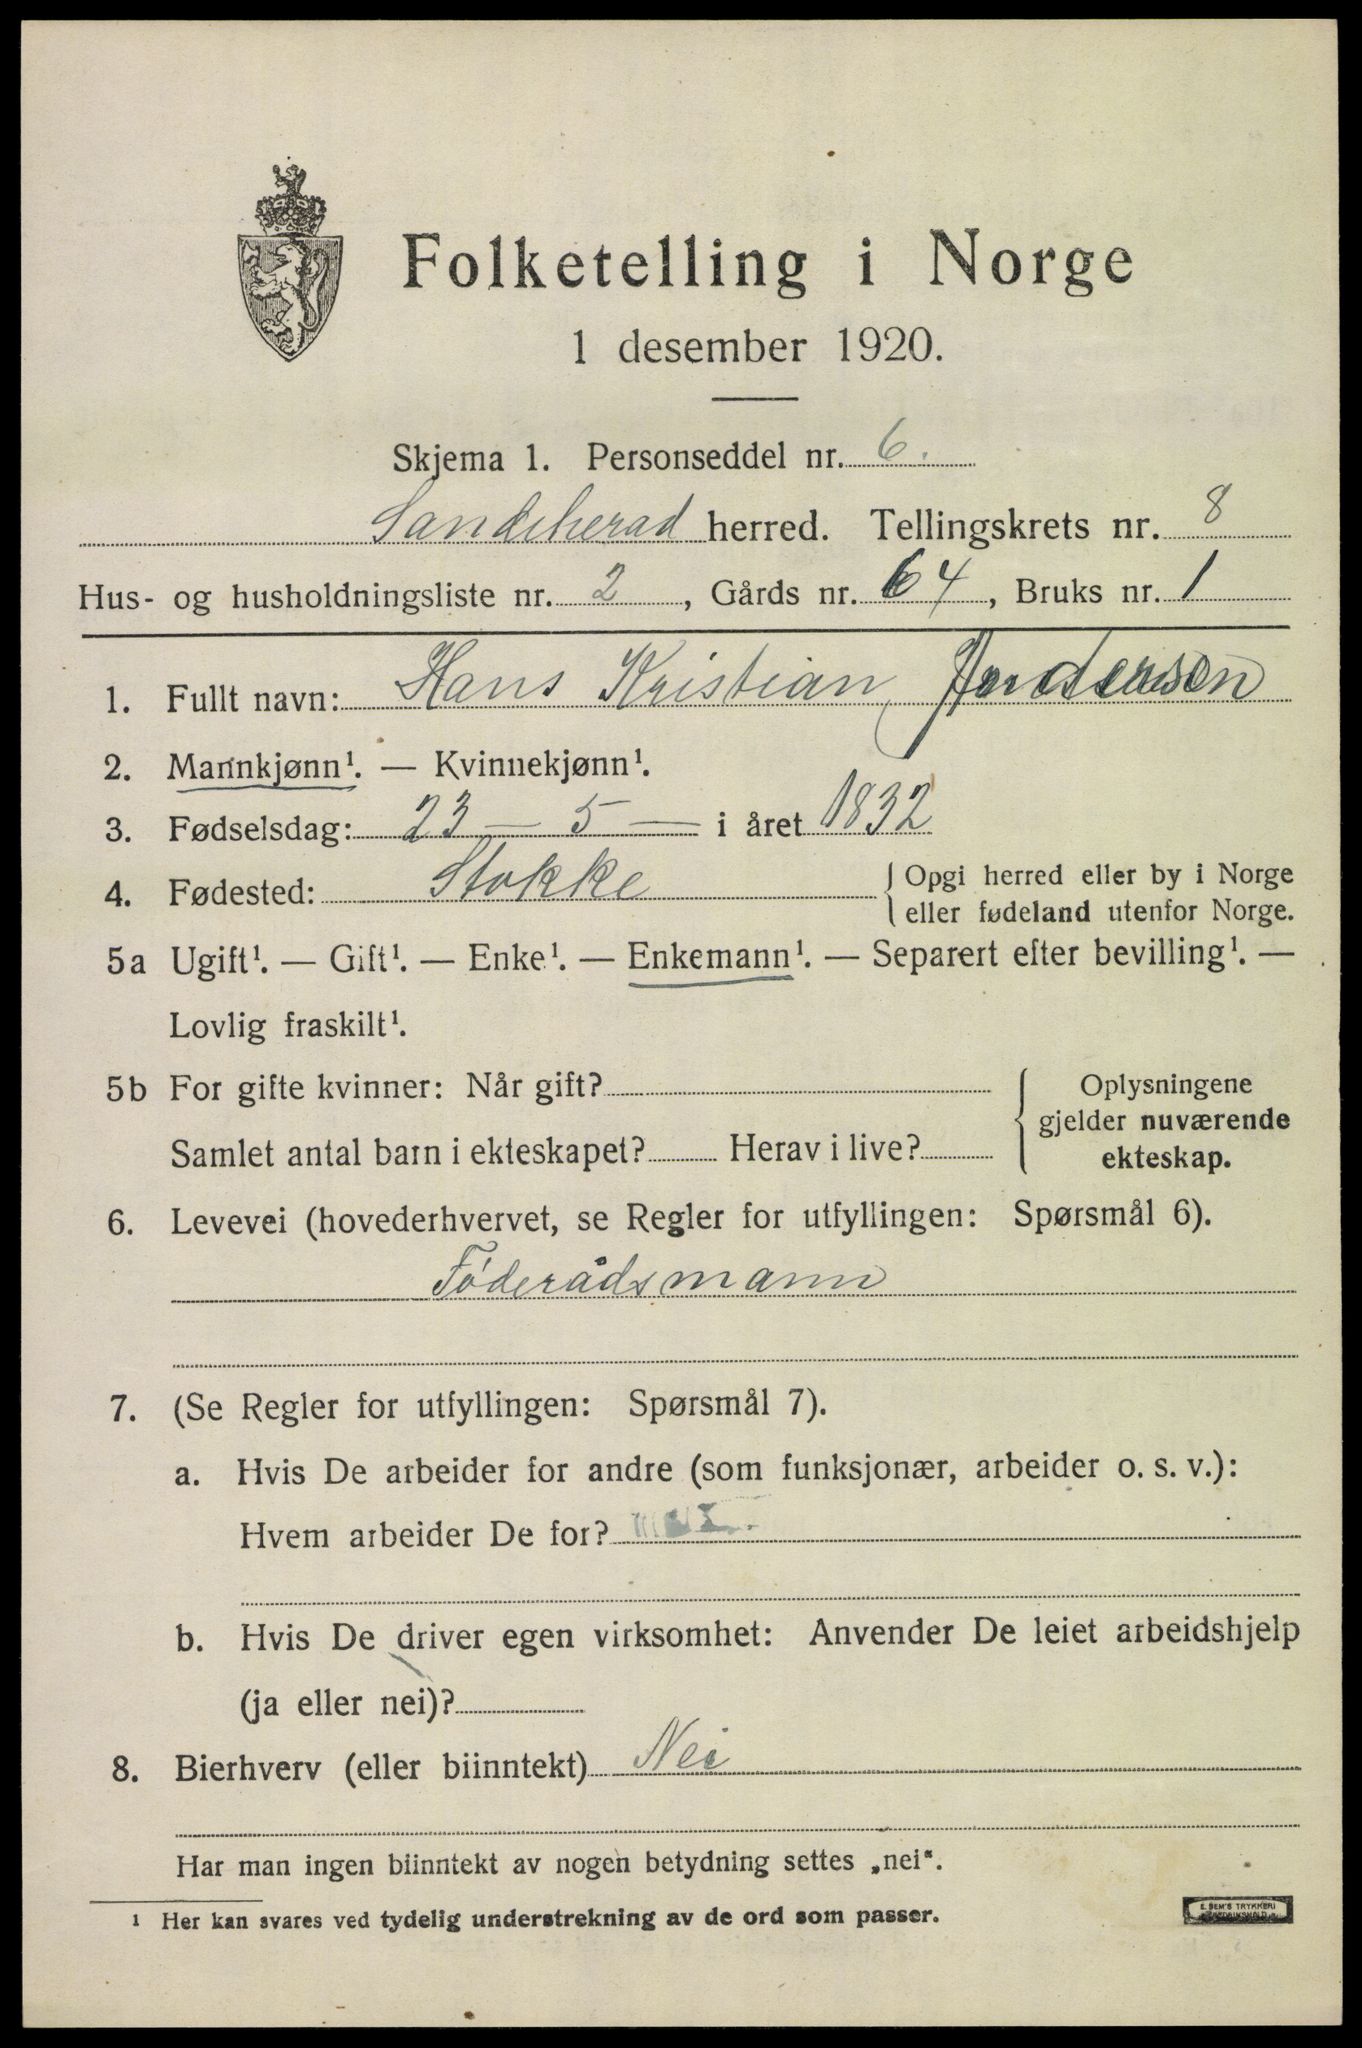 Folketelling i Norge
1 desember 1920.
Skjema 1. Personseddel nr. 6.
Sandeherad herred. Tellingskrets nr. 8
Hus- og husholdningsliste nr. 2, Gårds nr. 64, Bruks nr. 1
1. Fullt navn: Hans Kristian Andersen
2. Mannkjønn¹. — Kvinnekjønn¹.
3. Fødselsdag: 23 — 5 — i året 1832
4. Fødested: Stokke { Opgi herred eller by i Norge
eller fødeland utenfor Norge.
5a Ugift¹. — Gift¹. — Enke¹. — Enkemann¹. — Separert efter bevilling¹. —
Lovlig fraskilt¹.
5b For gifte kvinner: Når gift?
Samlet antal barn i ekteskapet? Herav i live?
{ Oplysningene
gjelder nuværende
ekteskap.
6. Levevei (hovederhvervet, se Regler for utfyllingen: Spørsmål 6).
Føderådsmann
7. (Se Regler for utfyllingen: Spørsmål 7).
a. Hvis De arbeider for andre (som funksjonær, arbeider o. s. v.):
Hvem arbeider De for?
b. Hvis De driver egen virksomhet: Anvender De leiet arbeidshjelp
(ja eller nei)?
8. Bierhverv (eller biinntekt) Nei
Har man ingen biinntekt av nogen betydning settes „nei“.
¹ Her kan svares ved tydelig understrekning av de ord som passer.
E. SEM'S TRYKKERI
FREDRIKSHALD